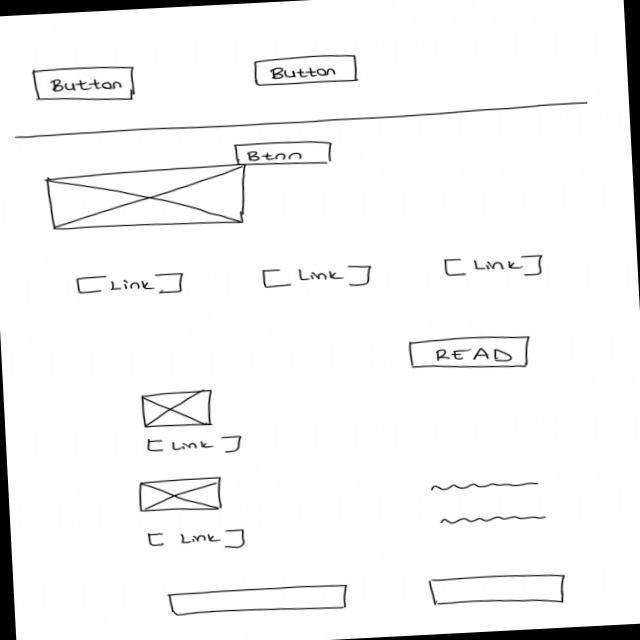 Button Button
Btnn
[ Link ] [ Link ] [ Link ]
READ
[ Link ]
[ Link ]